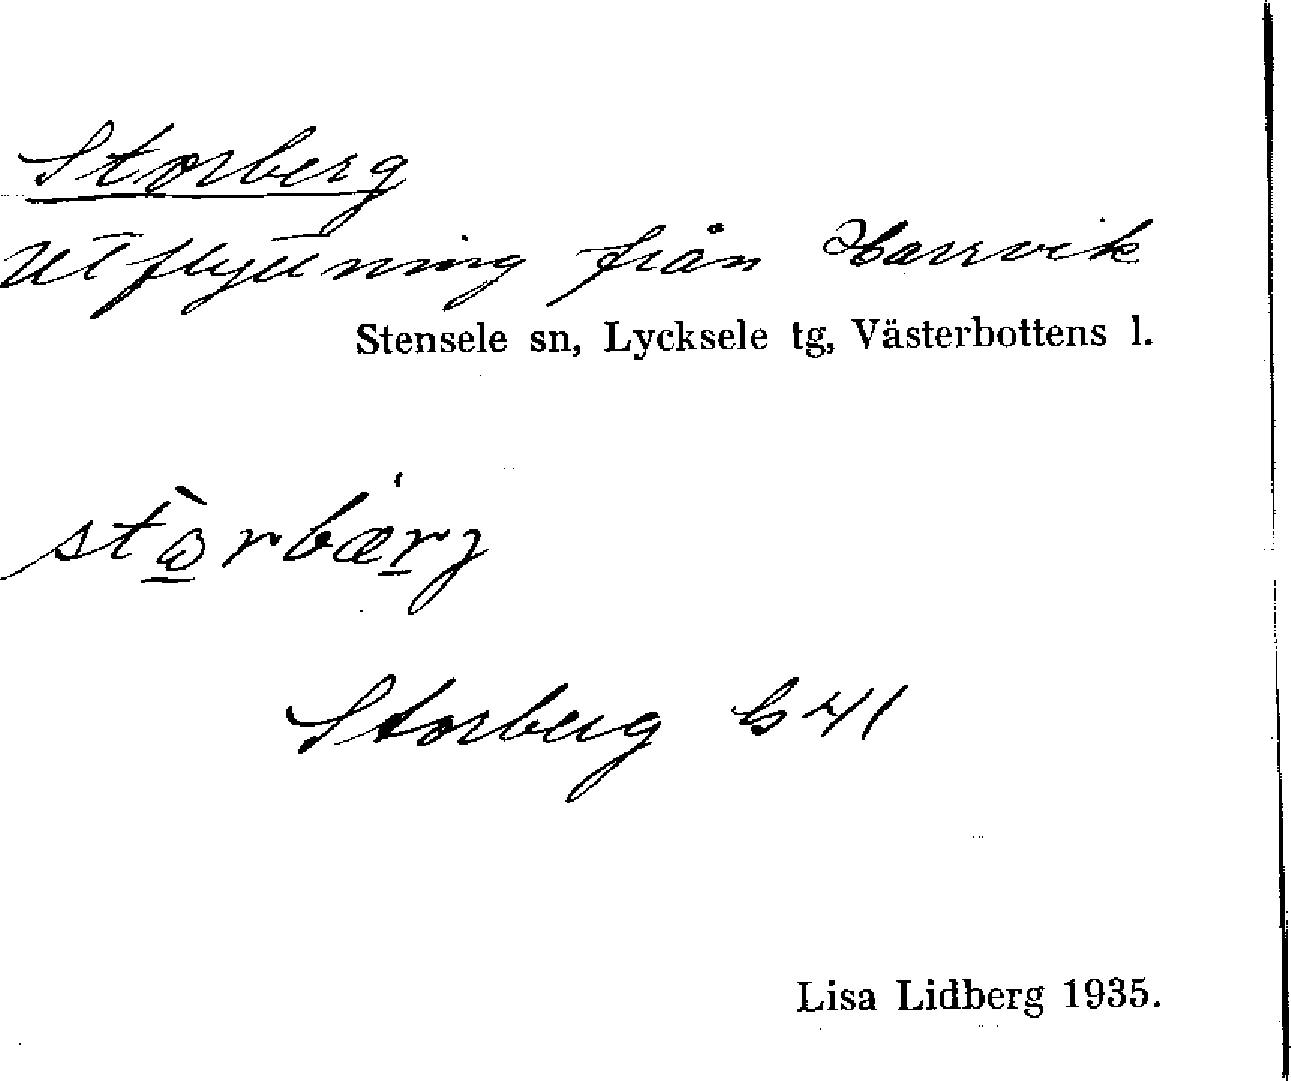 Storberg
Utflyttning från Harrvik
Stensele sn, Lycksele tg, Västerbottens l.
stɷ̲̀rbær̲j
Storberg G41
Lisa Lidberg 1935.